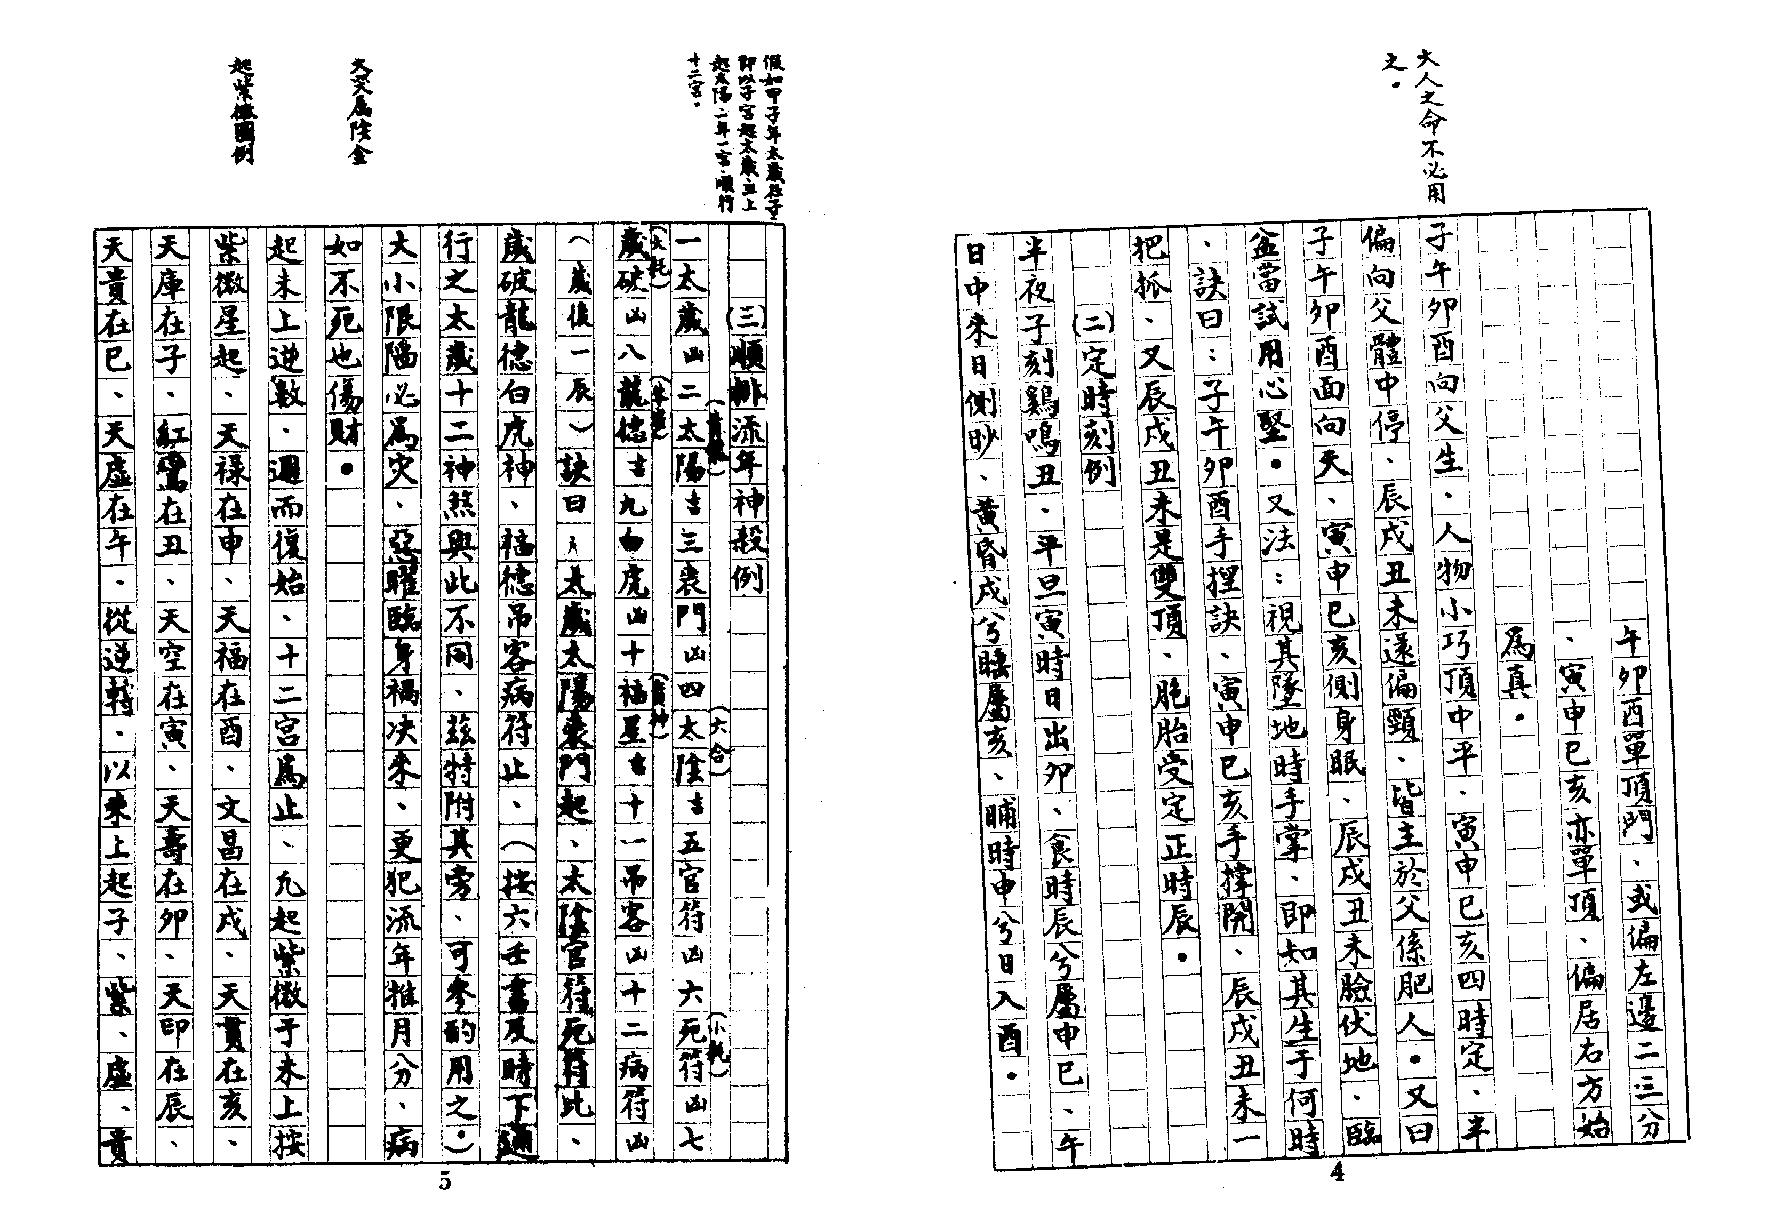 大人之命不必用
之。
午卯酉單頂門、或偏左邊二三分
、寅申巳亥亦單頂、偏居右方始
為真。
子午卯酉向父生、人物小巧頂中平、寅申巳亥四時定、半
偏向父體中停、辰戌丑未遠偏頸、皆主於父係肥人。又曰
子午卯酉面向天、寅申巳亥側身眠、辰戌丑未臉伏地、臨
盆當試用心堅。又法：視其墜地時手掌、即知其生于何時
、訣曰：子午卯酉手捏訣、寅申巳亥手撑開、辰戌丑未一
把抓、又辰戌丑未是雙頂、胞胎受定正時辰。
(二)定時刻例
半夜子刻鷄鳴丑、平旦寅時日出卯、食時辰兮屬申巳、午
日中未日側眇、黃昏戌兮睡屬亥、晡時申兮日入酉。
4
假如甲子年太歲在子
即以子宮起太歲、丑上
起太陽、二年一宮、順行
十二宮。
天哭屬陰金
起紫微圖例
(三)順排流年神殺例
(青龍) (六合) (小耗)
一太歲凶二太陽吉三喪門凶四太陰吉五官符凶六死符凶七
(大耗) (朱雀) (貴神)
歲破凶八龍德吉九白虎凶十福星吉十一吊客凶十二病符凶
(歲後一辰)訣曰：太歲太陽喪門起、太陰官符死符此、
歲破龍德白虎神、福德吊客病符止、(按六壬書及時下通
行之太歲十二神煞與此不同、茲特附其旁、可參酌用之。)
大小限陷必為灾、惡曜臨身禍决來、更犯流年推月分、病
如不死也傷財。
起未上逆數、週而復始、十二宮為止、凡起紫微于未上按
紫微星起、天祿在申、天福在酉、文昌在戌、天貫在亥、
天庫在子、紅鸞在丑、天空在寅、天壽在卯、天印在辰、
天貴在巳、天虛在午、從逆轉、以未上起子、紫、虛、貴
5